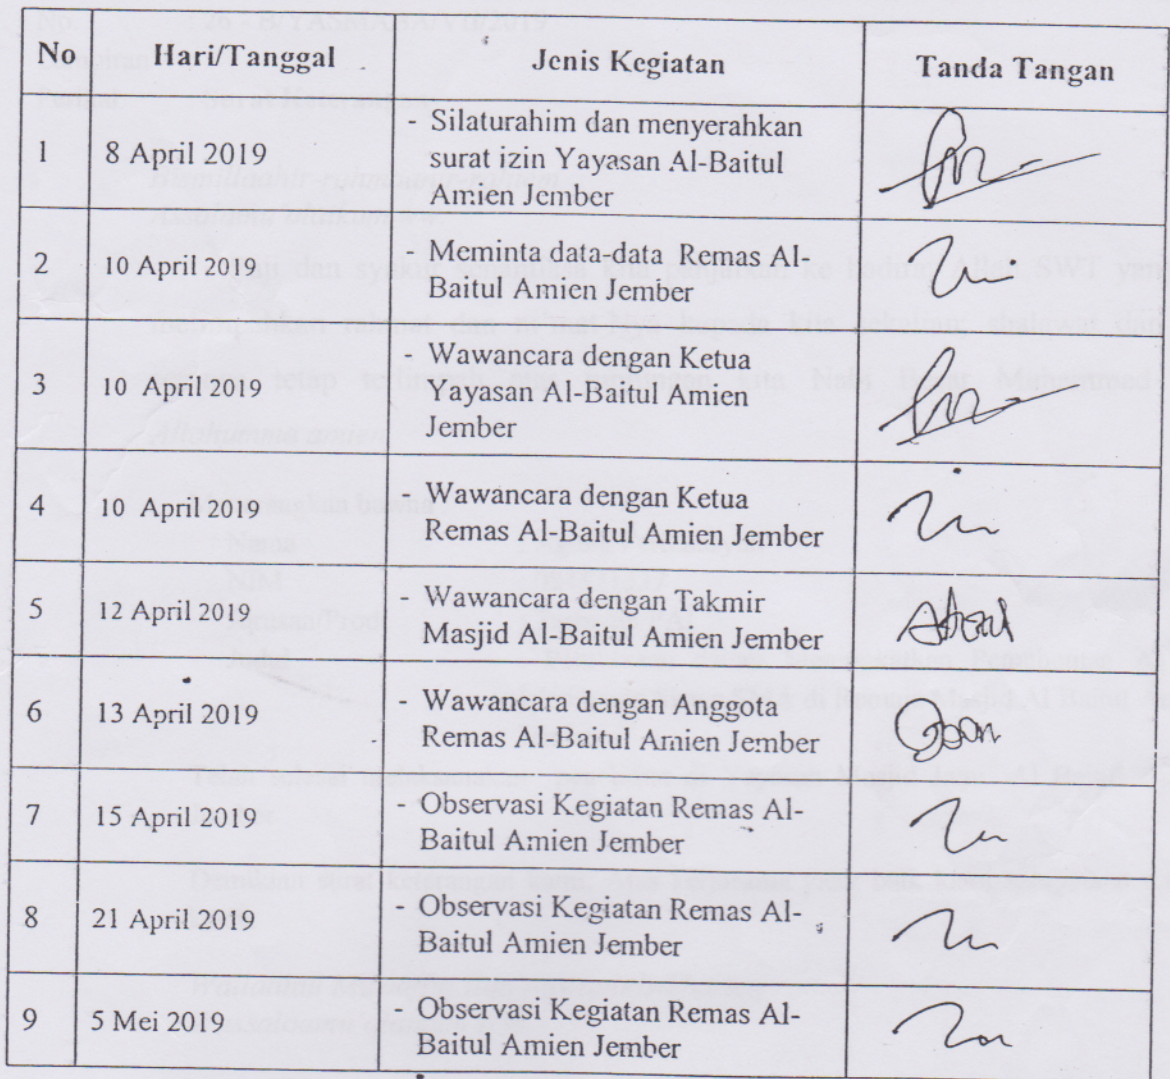 No Hari/Tanggal Jenis Kegiatan Tanda Tangan
1 8 April 2019 - Silaturahim dan menyerahkan
surat izin Yayasan Al-Baitul
Amien Jember
2 10 April 2019 - Meminta data-data Remas Al-
Baitul Amien Jember
3 10 April 2019 - Wawancara dengan Ketua
Yayasan Al-Baitul Amien
Jember
4 10 April 2019 - Wawancara dengan Ketua
Remas Al-Baitul Amien Jember
5 12 April 2019 - Wawancara dengan Takmir
Masjid Al-Baitul Amien Jember
6 13 April 2019 - Wawancara dengan Anggota
Remas Al-Baitul Amien Jember
7 15 April 2019 - Observasi Kegiatan Remas Al-
Baitul Amien Jember
8 21 April 2019 - Observasi Kegiatan Remas Al-
Baitul Amien Jember
9 5 Mei 2019 - Observasi Kegiatan Remas Al-
Baitul Amien Jember